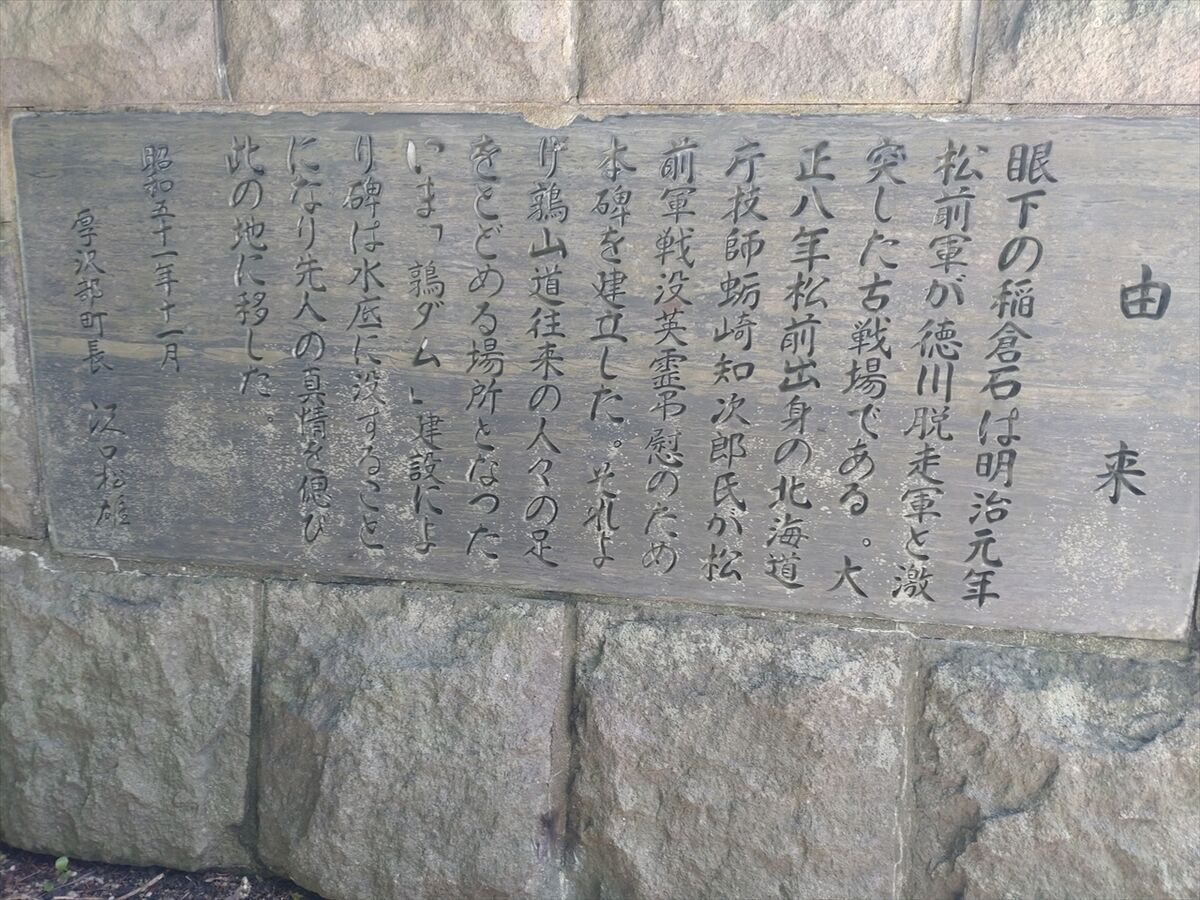 由来
眼下の稲倉石は明治元年
松前軍が徳川脱走軍と激
突した古戦場である。大
正八年松前出身の北海道
庁技師蛎崎知次郎氏が松
前軍戦没英霊弔慰のため
本碑を建立した。それよ
り鶉山道往来の人々の足
をとどめる場所となった
いま「鶉ダム」建設によ
り碑は水底に没すること
になり先人の真情を偲び
此の地に移した。
昭和五十一年十一月
厚沢部町長 沢口松雄